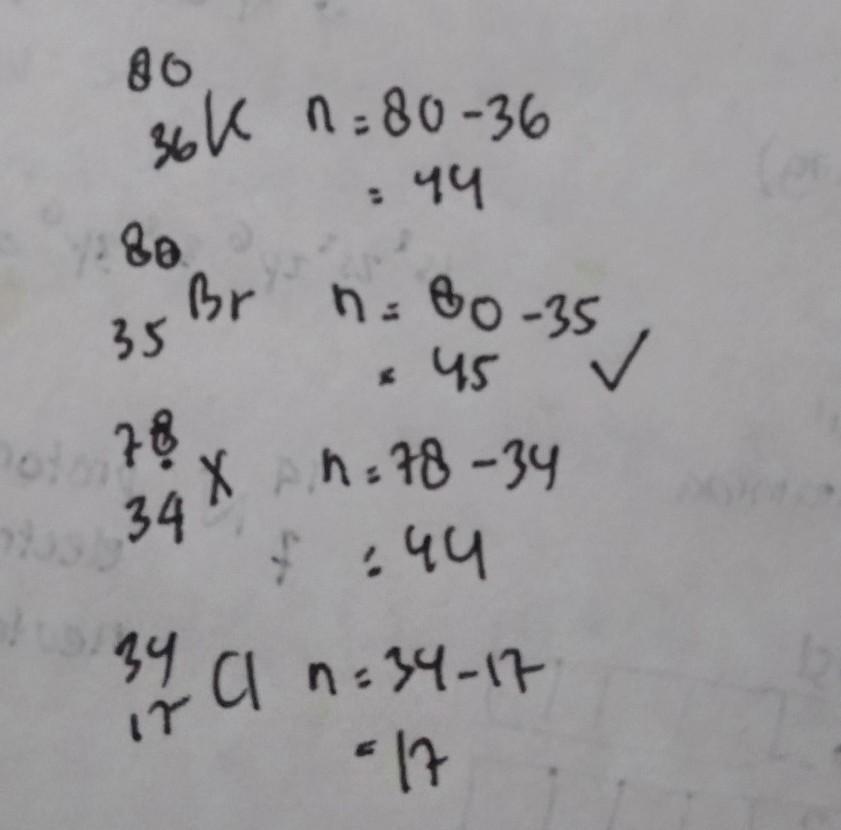 80
36 K n = 80 - 36
= 44
80
35 Br n = 80 - 35
= 45 ✓
78
34 X n = 78 - 34
= 44
34
17 Cl n = 34 - 17
= 17